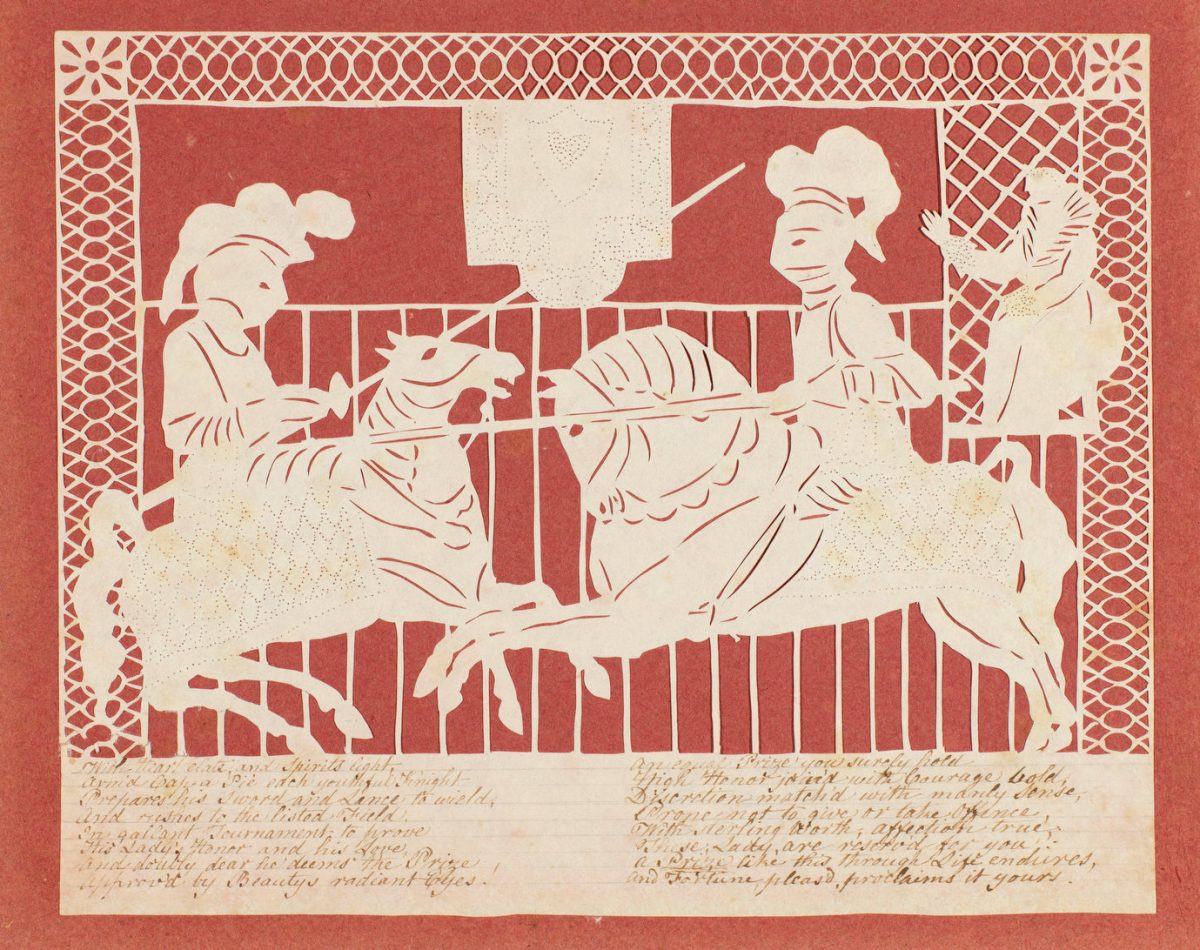 With Heart elate, and Spirits light
Arm'd Cap-a Pie each youthful Knight
Prepares his Sword and Lance to wield,
And rushes to the listed Field.
In gallant Tournament to prove
His Lady's Honor and his Love
And doubly dear he deems the Prize
Approv'd by Beautys radiant Eyes!
An equal Prize you surely hold
High Honor join'd with Courage bold,
Discretion match'd with manly Sense,
Prone not to give, or take Offence,
With sterling Worth, affection true,
These Lady, are reserved for you;
a Prize like this through Life endures,
and Fortune, pleas'd, proclaims it yours.